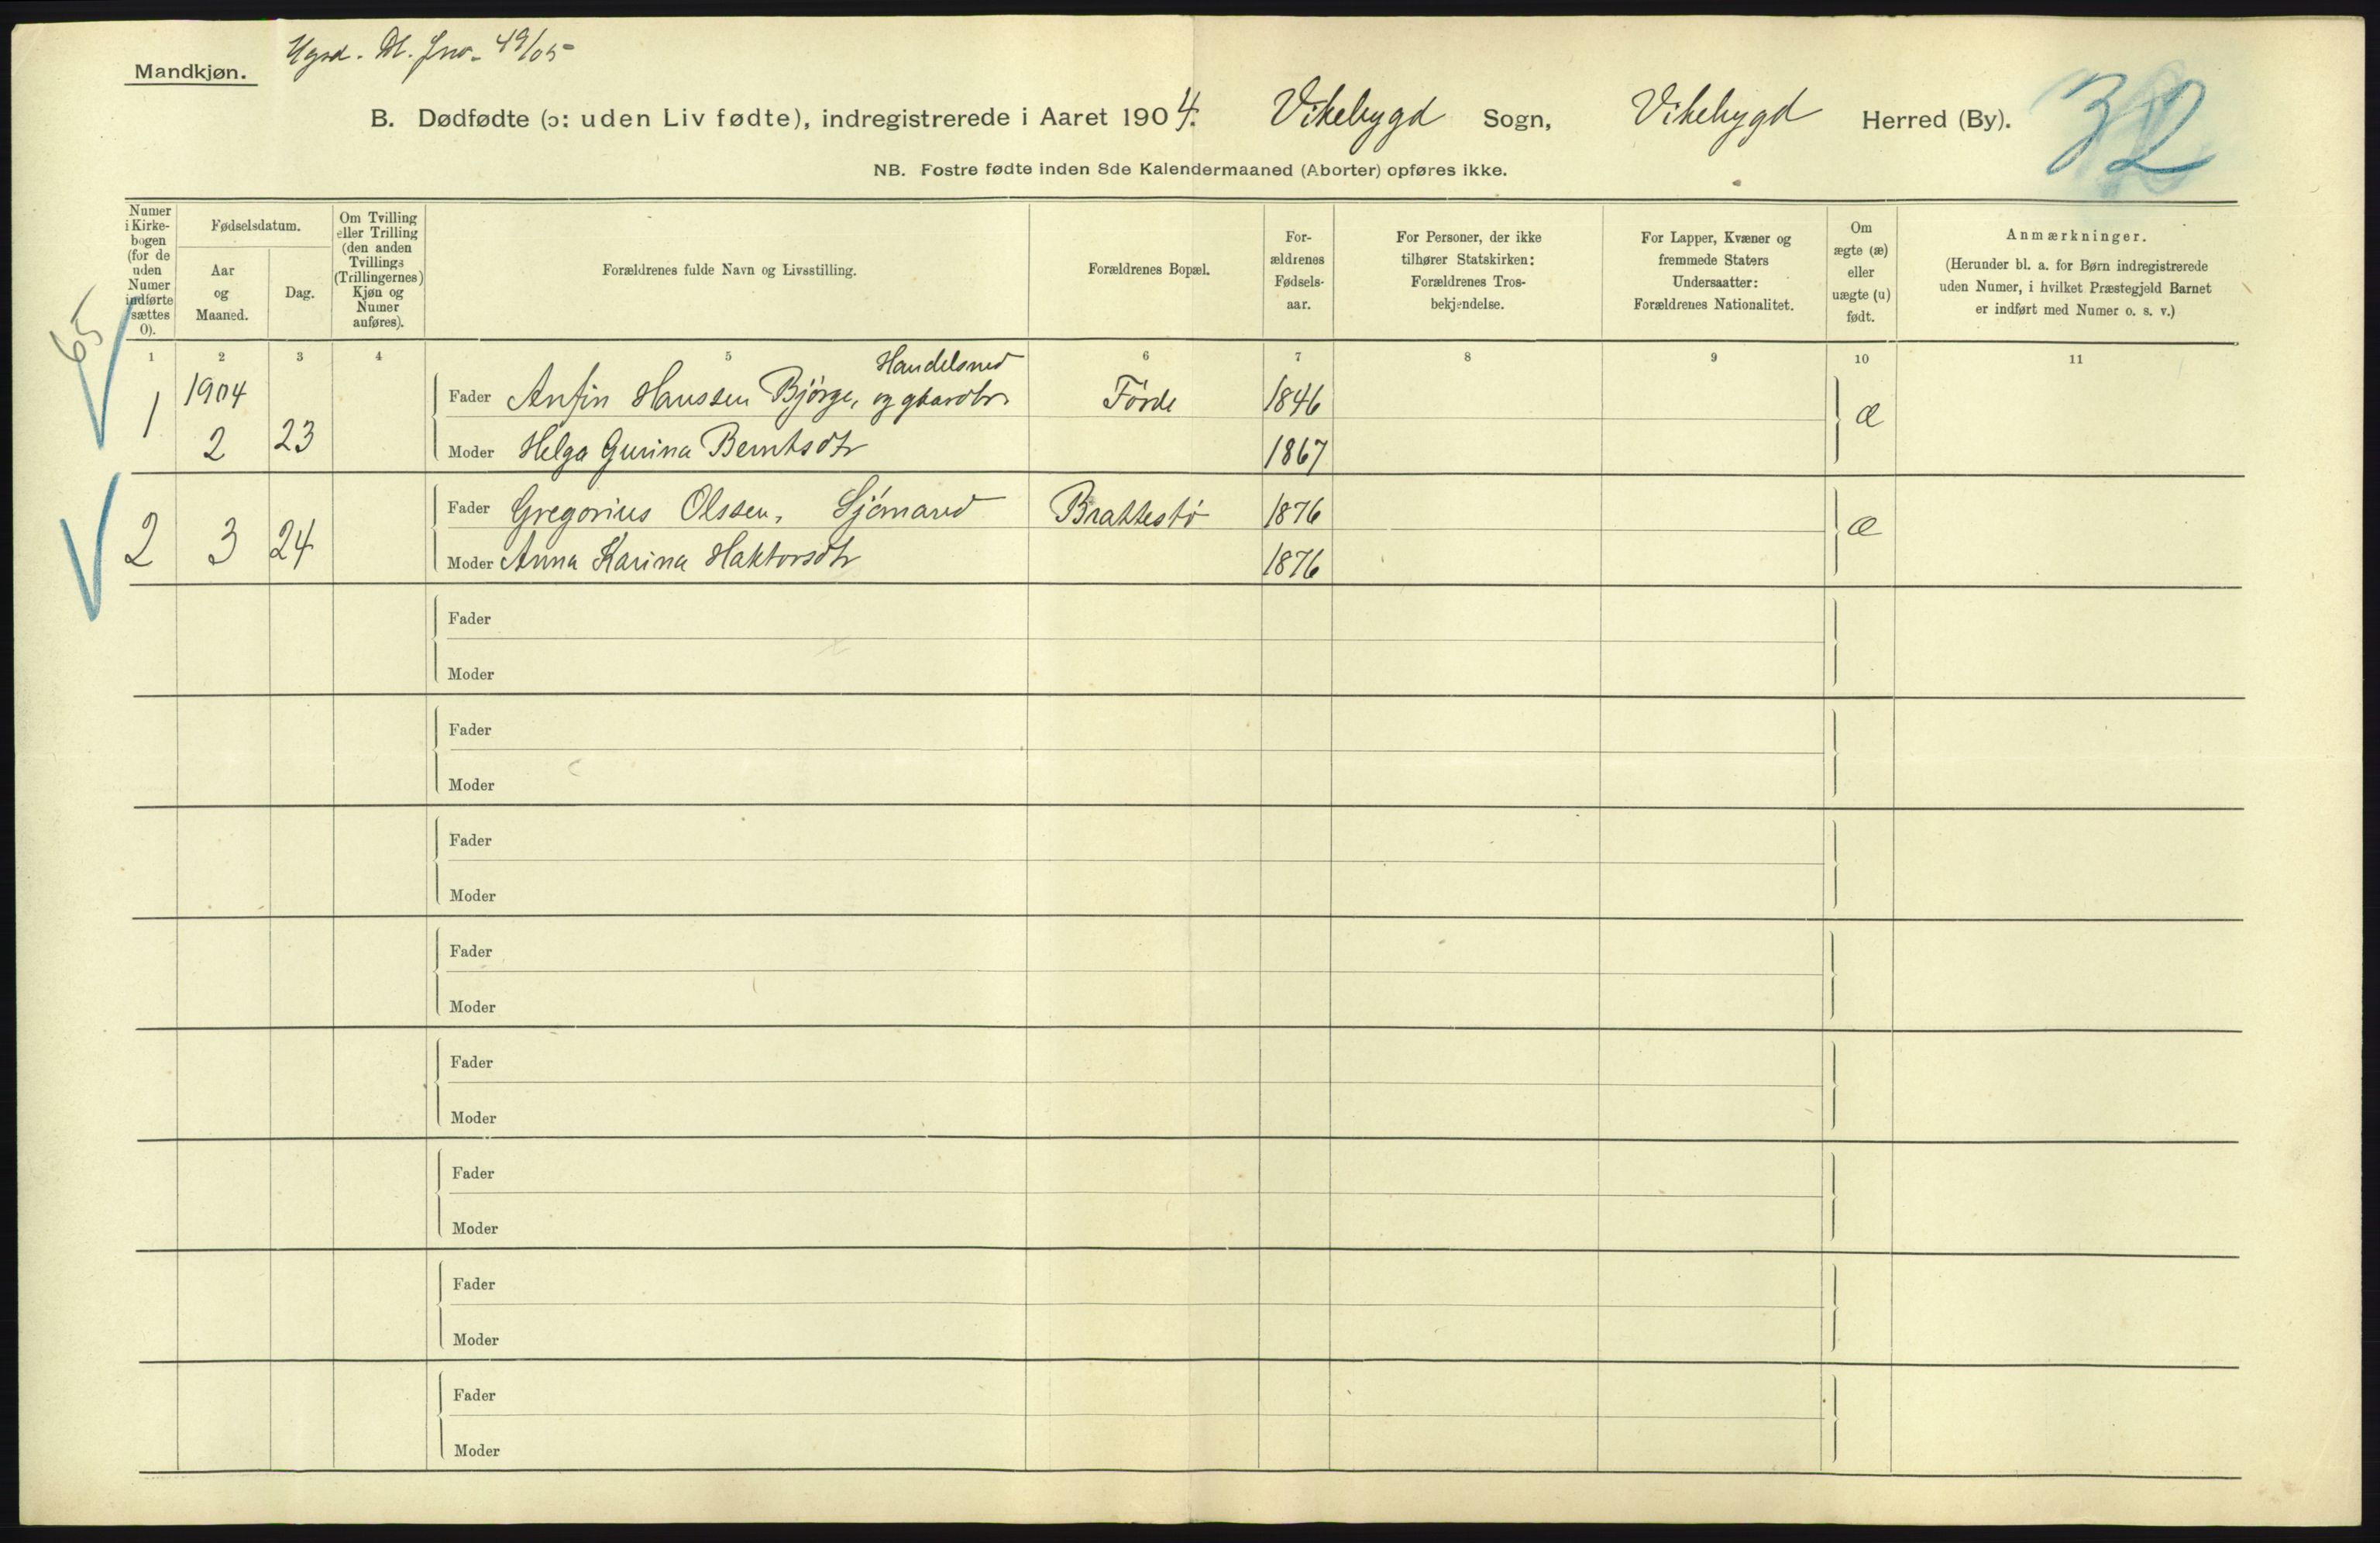 Mandkjøn.
Dl. Jno. 49/05
B. Dødfødte (ɔ: uden Liv fødte), indregistrerede i Aaret 1904. Vikebygd Sogn, Vikebygd Herred (By).
32
NB. Fostre fødte inden 8de Kalendermaaned (Aborter) opføres ikke.
65
Numer
i Kirke-
bogen
(for de
uden
Numer
indførte
sættes
0).
Fødselsdatum.
Aar
og
Maaned.
Dag.
Om Tvilling
eller Trilling
(den anden
Tvillings
(Trillingernes)
Kjøn og
Numer
anføres).
Forældrenes fulde Navn og Livsstilling.
Forældrenes Bopæl.
For-
ældrenes
Fødsels-
aar.
For Personer, der ikke
tilhører Statskirken:
Forældrenes Tros-
bekjendelse.
For Lapper, Kvæner og
fremmede Staters
Undersaatter:
Forældrenes Nationalitet.
Om
ægte (æ)
eller
uægte (u)
født.
Anmærkninger.
(Herunder bl. a. for Børn indregistrerede
uden Numer, i hvilket Præstegjeld Barnet
er indført med Numer o. s. v.)
1 2 3 4 5 6 7 8 9 10 11
Handelsmd
1 1904 Fader Anfin Hanssen Bjørge, og gbardbr. Førde 1846 æ
2 23 Moder Helga Gurina Berntsdtr 1867
Fader Gregorius Olssen, Sjömand Brattestø 1876 æ
2 3 24 Moder Anna Karina Haktorsdtr 1876
Fader
Moder
Fader
Moder
Fader
Moder
Fader
Moder
Fader
Moder
Fader
Moder
Fader
Moder
Fader
Moder